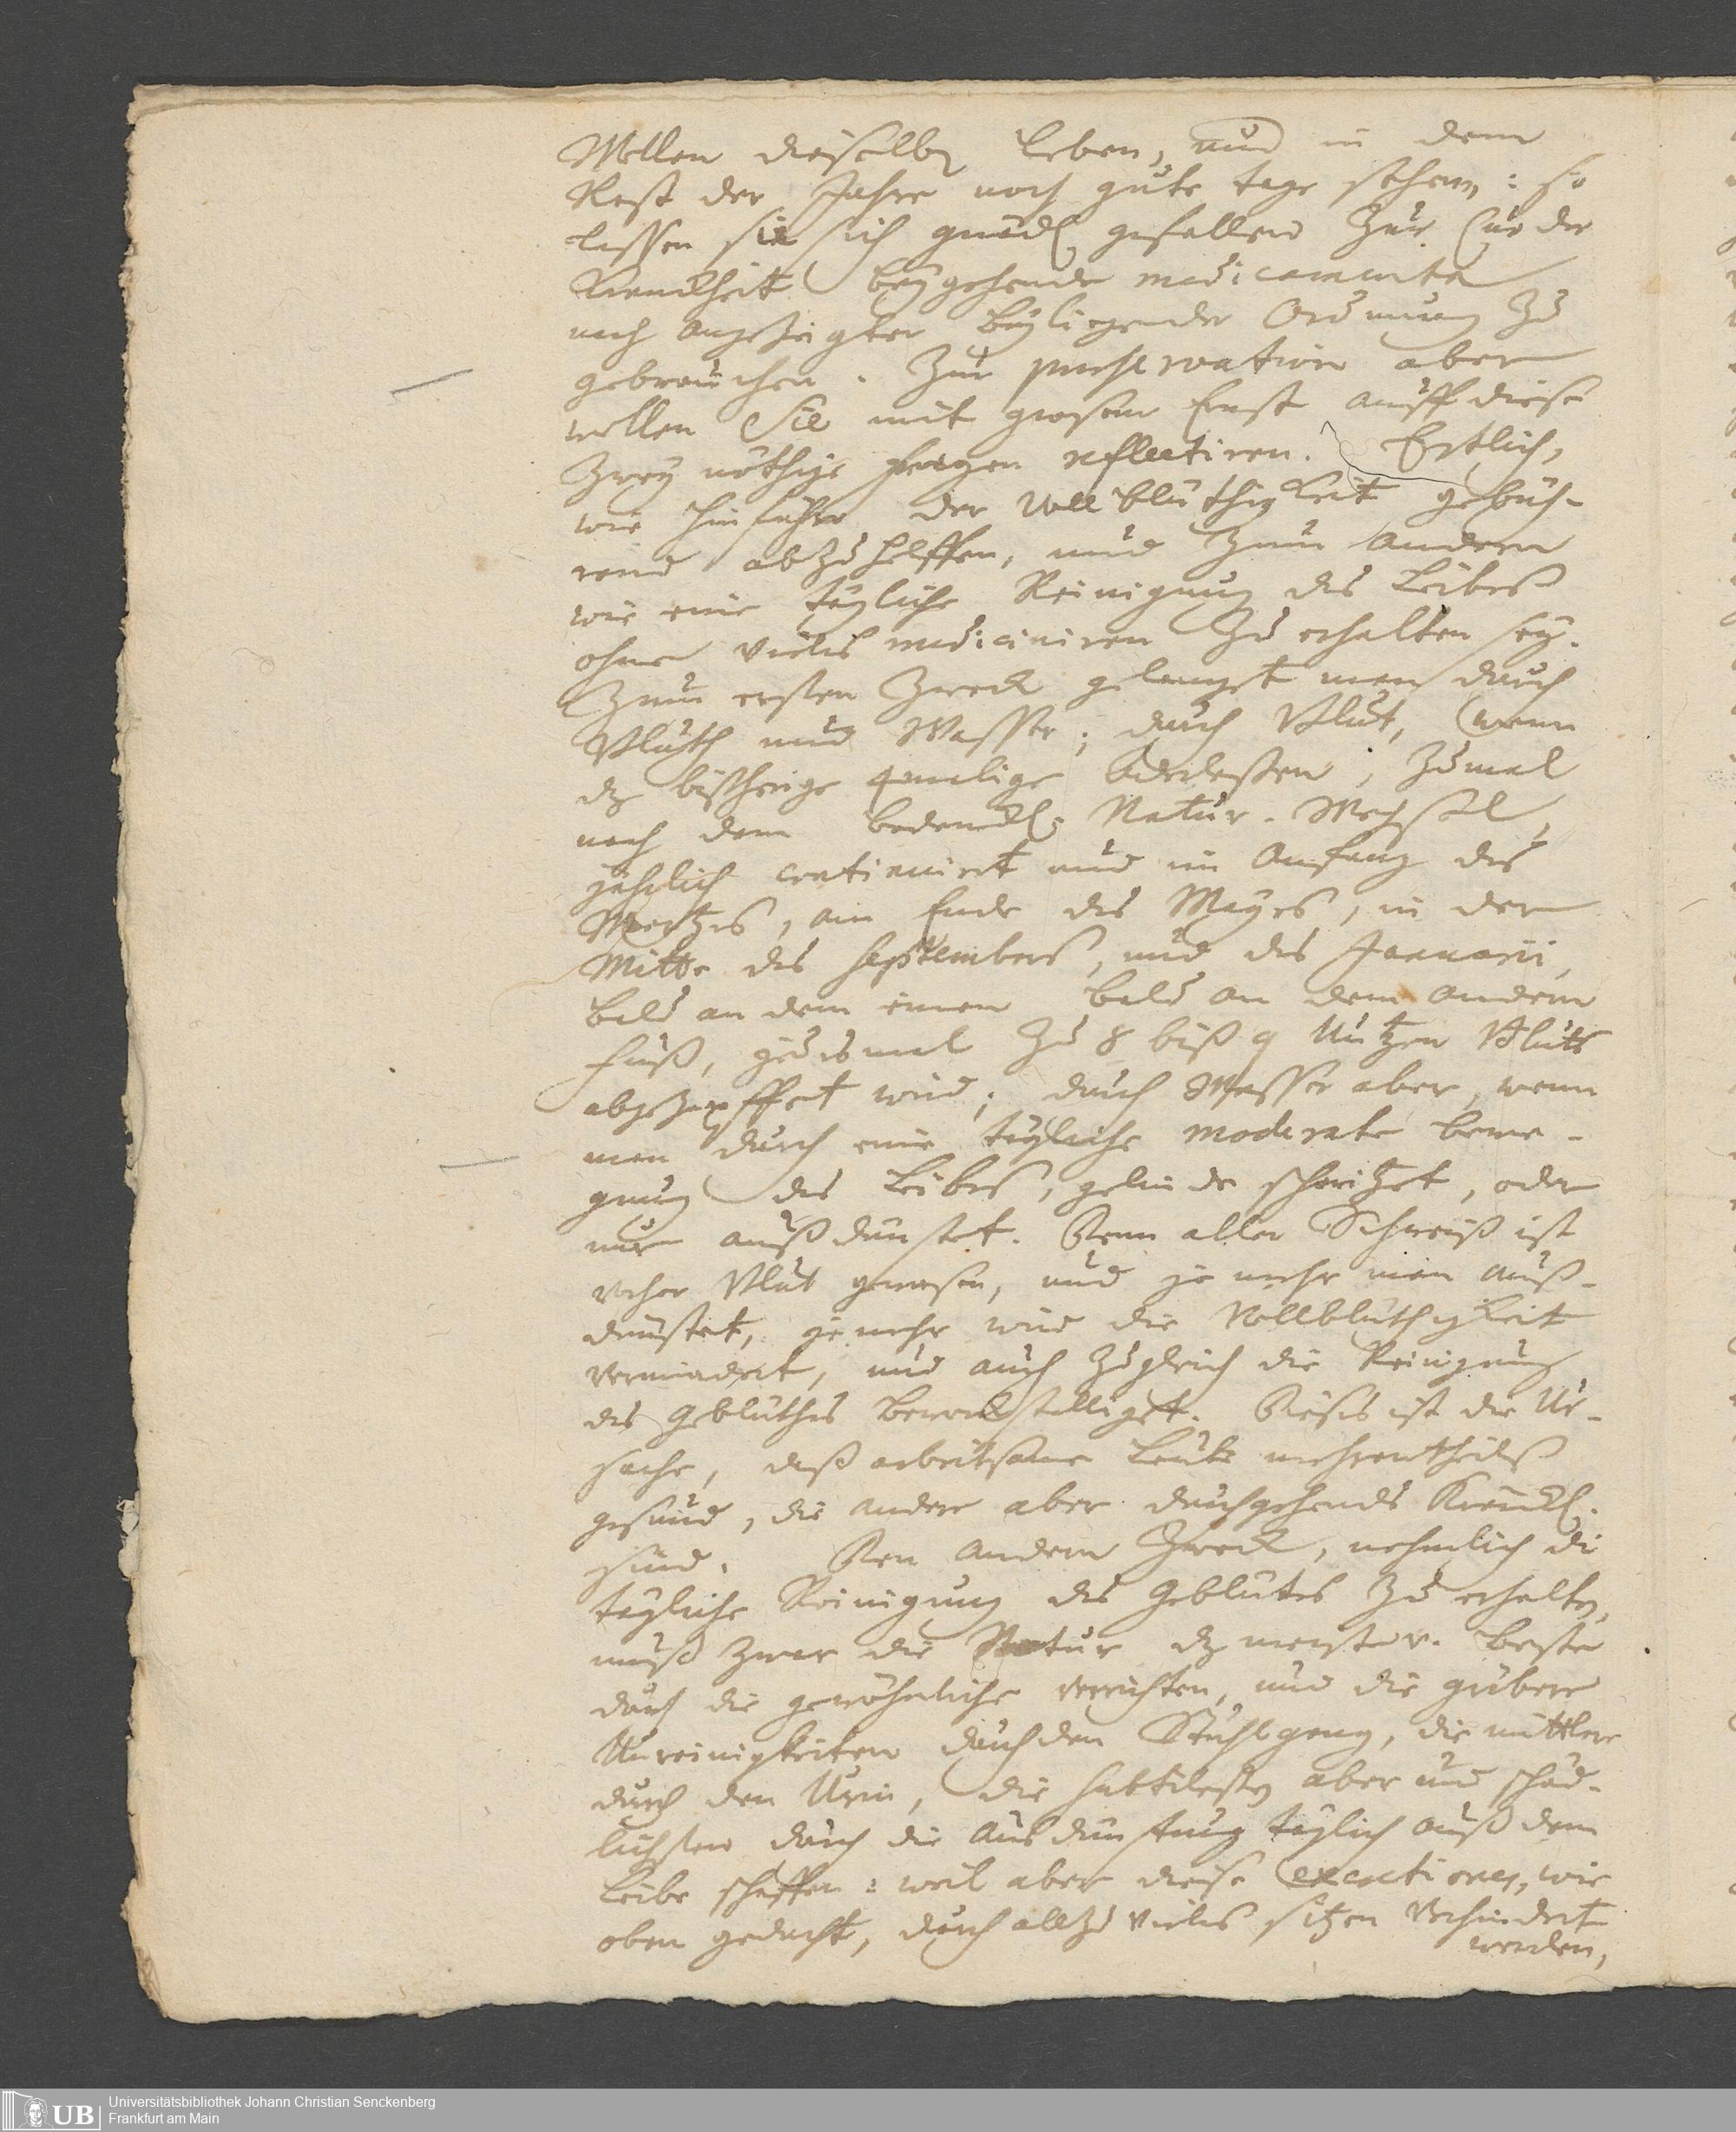 Wollen dieselbe leben, und in dem
Rest der Jahre noch gute tage sehen: so
lassen sie sich gnädl gefallen zur Cur der
Kranckheit beygehende medicamenta
nach angezeigter beyliegender Ordnung zu
gebrauchen. Zur praeservation aber
wollen Sie mit grosem Ernst auff diese
zwey nöthige fragen reflectiren. Erstlich,
wie hinführo der Vollblüthigkeit gebüh-
rend abzuhelffen, und zum andern
wie eine tägliche Reinigung des Leibes
ohne vieles mediciniren zu erhalten sey.
Zum ersten Zweck gelanget man durch
Bluth und Wasser; durch Blut, wenn
dz bißherige 4malige Aderlassen, zumal
nach dem bedencklr Natur-Wechsel,
jährlich continuirt und im Anfang des
Mertzes, am Ende des Mayes, in der
Mitte des Septembers, und des Januarii,
bald an dem einen bald an dem andern
Fuß, jedesmal zu 8 biß 9 Untzen Bluts
abgezapffet wird; durch Wasser aber, wenn
man durch eine tägliche moderate bewe-
gung des Leibes, gelinde schwitzet, oder
nur außdünstet. Denn aller Schweiß ist
vorher Blut gewesen, und je mehr man auß-
dünstet, je mehr wird die Vollblüthigkeit
vermindert, und auch zugleich die Reinigung
des Geblüthes bewerckstelliget. Dieses ist die Ur-
sache, daß arbeitsame Leute mehrentheils
gesund, die andere aber durchgehends Kränckl.
sind. Den andern Zweck, nehmlich die
tägliche Reinigung des Geblütes zu erhalten,
muß zwar die Natur dz meiste u. beste
durch die gewöhnliche verrichten, und die gröbere
Unreinigkeiten durch den Stuhlgang, die mittlere
durch den Urin, die subtileste aber und schäd-
lichsten durch die Ausdünstung täglich auß dem
Leibe schaffen: weil aber diese excretiones, wie
oben gedacht, durch allzu vieles sitzen verhindert
werden,
Universitätsbibliothek Johann Christian Senckenberg
Frankfurt am Main
UB